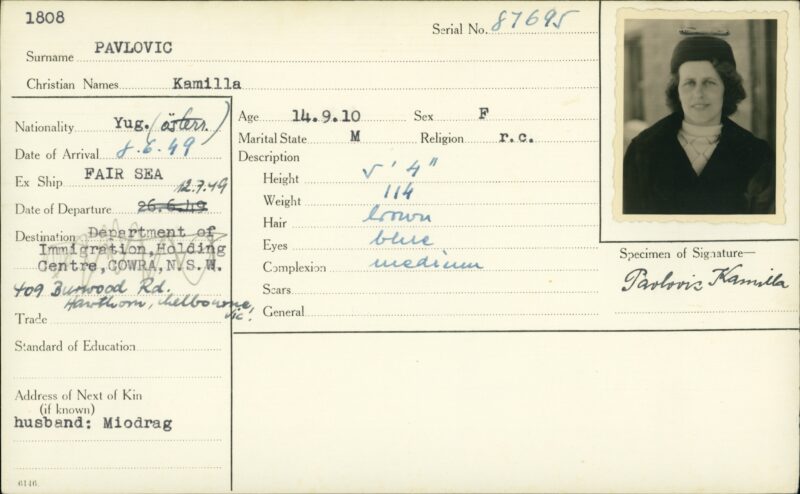 1808
Serial No. 87695
Surname PAVLOVIC
Christian Names Kamilla
Nationality Yug. (österr.)
Date of Arrival 8.6.49
Ex Ship FAIR SEA
12.7.49
Date of Departure 26.6.49
Destination Department of
Immigration, Holding
Centre, COWRA, N.S.W.
409 Burwood Rd.
Hawthorn, Melbourne,
Vic.
Trade
Standard of Education
Address of Next of Kin
(if known)
husband: Miodrag
6146.
Age 14.9.10 Sex F
Marital State M Religion r.c.
Description
Height 5' 4"
Weight 114
Hair brown
Eyes blue
Complexion medium
Scars
General
Specimen of Signature—
Pavlovic Kamilla